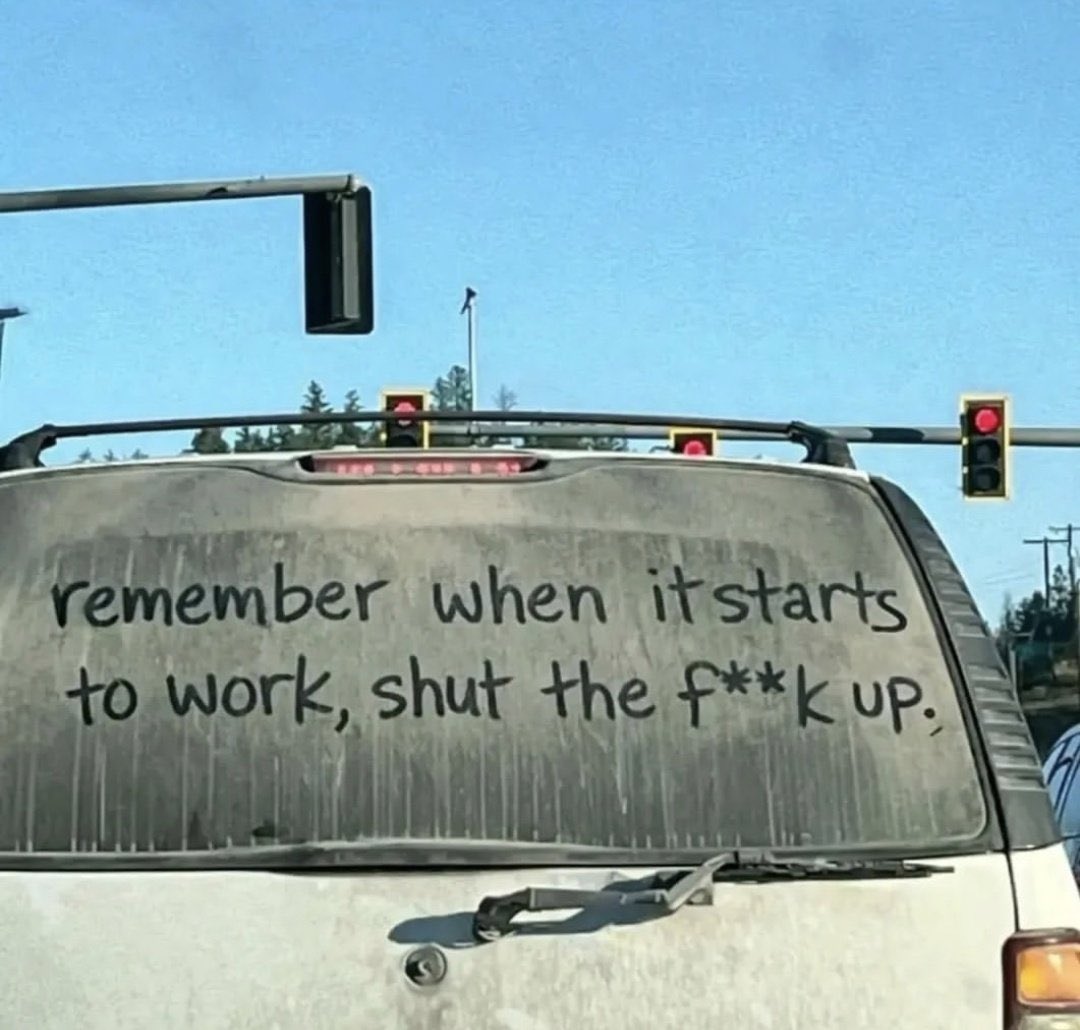 remember when it starts
to work, shut the f**k up.